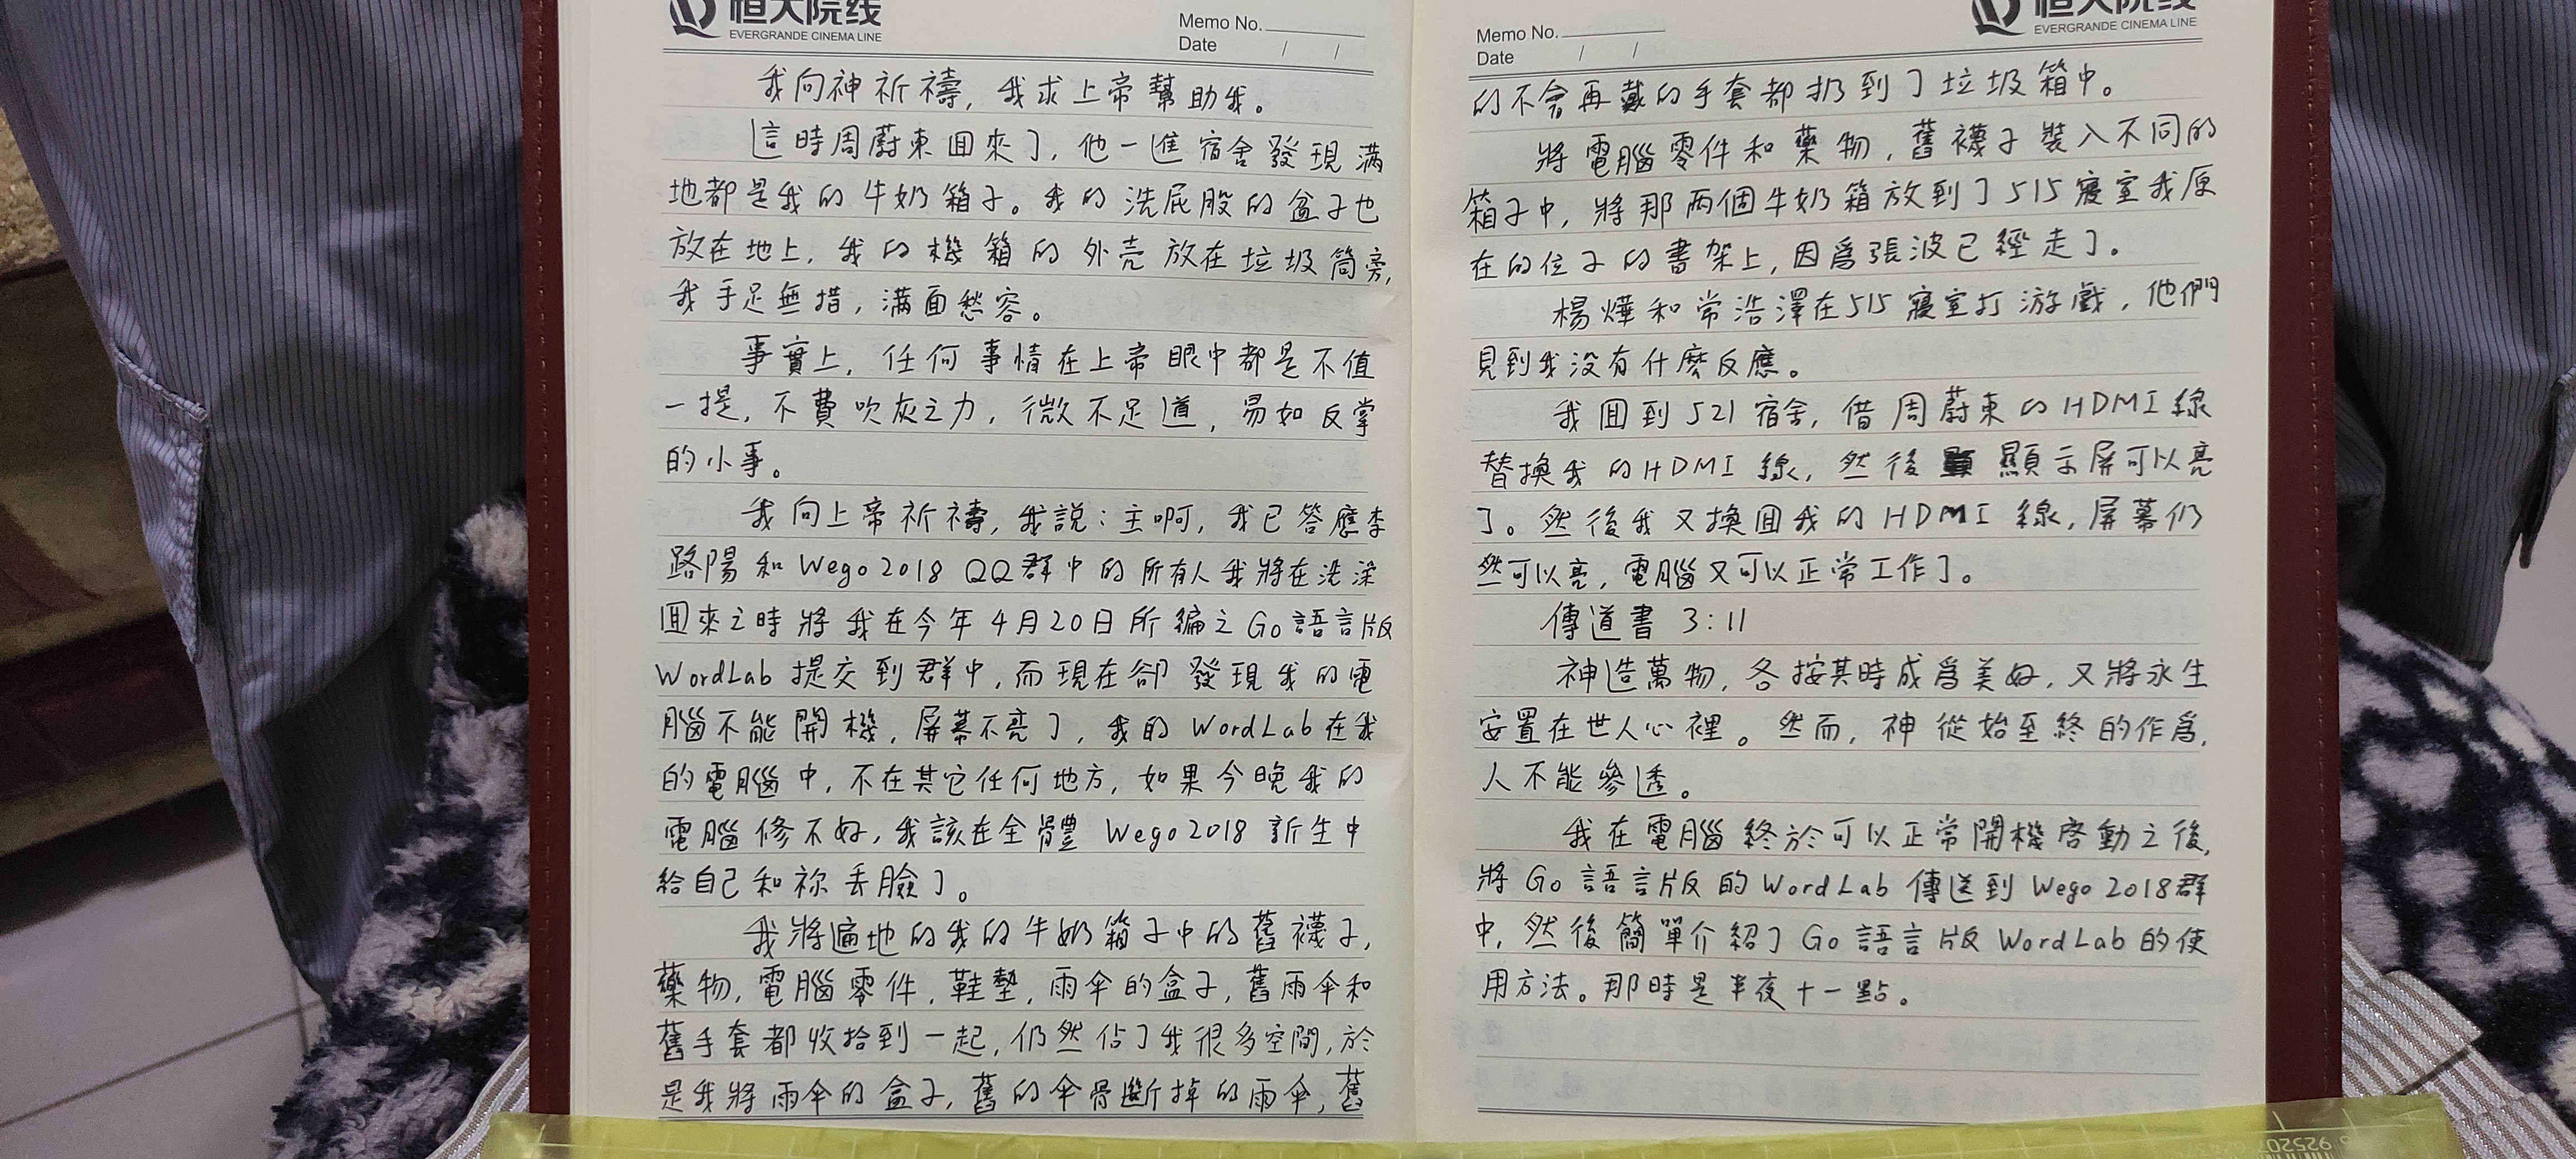 恒大院线
EVERGRANDE CINEMA LINE
Memo No.
Date / /
我向神祈禱，我求上帝幫助我。
這時周蔚東囬來了，他一進宿舍發現滿
地都是我的牛奶箱子。我的洗屁股的盆子也
放在地上，我的機箱的外壳放在垃圾筒旁，
我手足無措，满面愁容。
事實上，任何事情在上帝眼中都是不值
一提，不費吹灰之力，微不足道，易如反掌
的小事。
我向上帝祈禱，我說：主啊，我已答應李
路陽和Wego2018 QQ群中的所有人我將在洗澡
囬來之時將我在今年4月20日所編之Go語言版
WordLab提交到群中，而現在卻發現我的電
腦不能開機，屏幕不亮了，我的WordLab在我
的電腦中，不在其它任何地方，如果今晚我的
電腦修不好，我該在全體Wego2018新生中
給自己和祢丢臉了。
我將遍地的我的牛奶箱子中的舊襪子，
藥物，電腦零件，鞋墊，雨伞的盒子，舊雨伞和
舊手套都收拾到一起，仍然佔了我很多空間，於
是我將雨伞的盒子，舊的伞骨斷掉的雨伞，舊
恒大院线
EVERGRANDE CINEMA LINE
Memo No.
Date / /
的不會再戴的手套都扔到了垃圾箱中。
將電腦零件和藥物，舊襪子裝入不同的
箱子中，將那两個牛奶箱放到了515寢室我原
在的位子的書架上，因爲張波已經走了。
楊燁和常浩澤在515寢室打游戲，他們
見到我没有什麽反應。
我囬到521宿舍，借周蔚東的HDMI線
替換我的HDMI線，然後顯示屏可以亮
了。然後我又換囬我的HDMI線，屏幕仍
然可以亮，電腦又可以正常工作了。
傳道書 3:11
神造萬物，各按其時成爲美好，又將永生
安置在世人心裡。然而，神從始至終的作爲，
人不能參透。
我在電腦終於可以正常開機啓動之後，
將Go語言版的WordLab傳送到Wego2018群
中，然後簡單介紹了Go語言版WordLab的使
用方法。那時是半夜十一點。